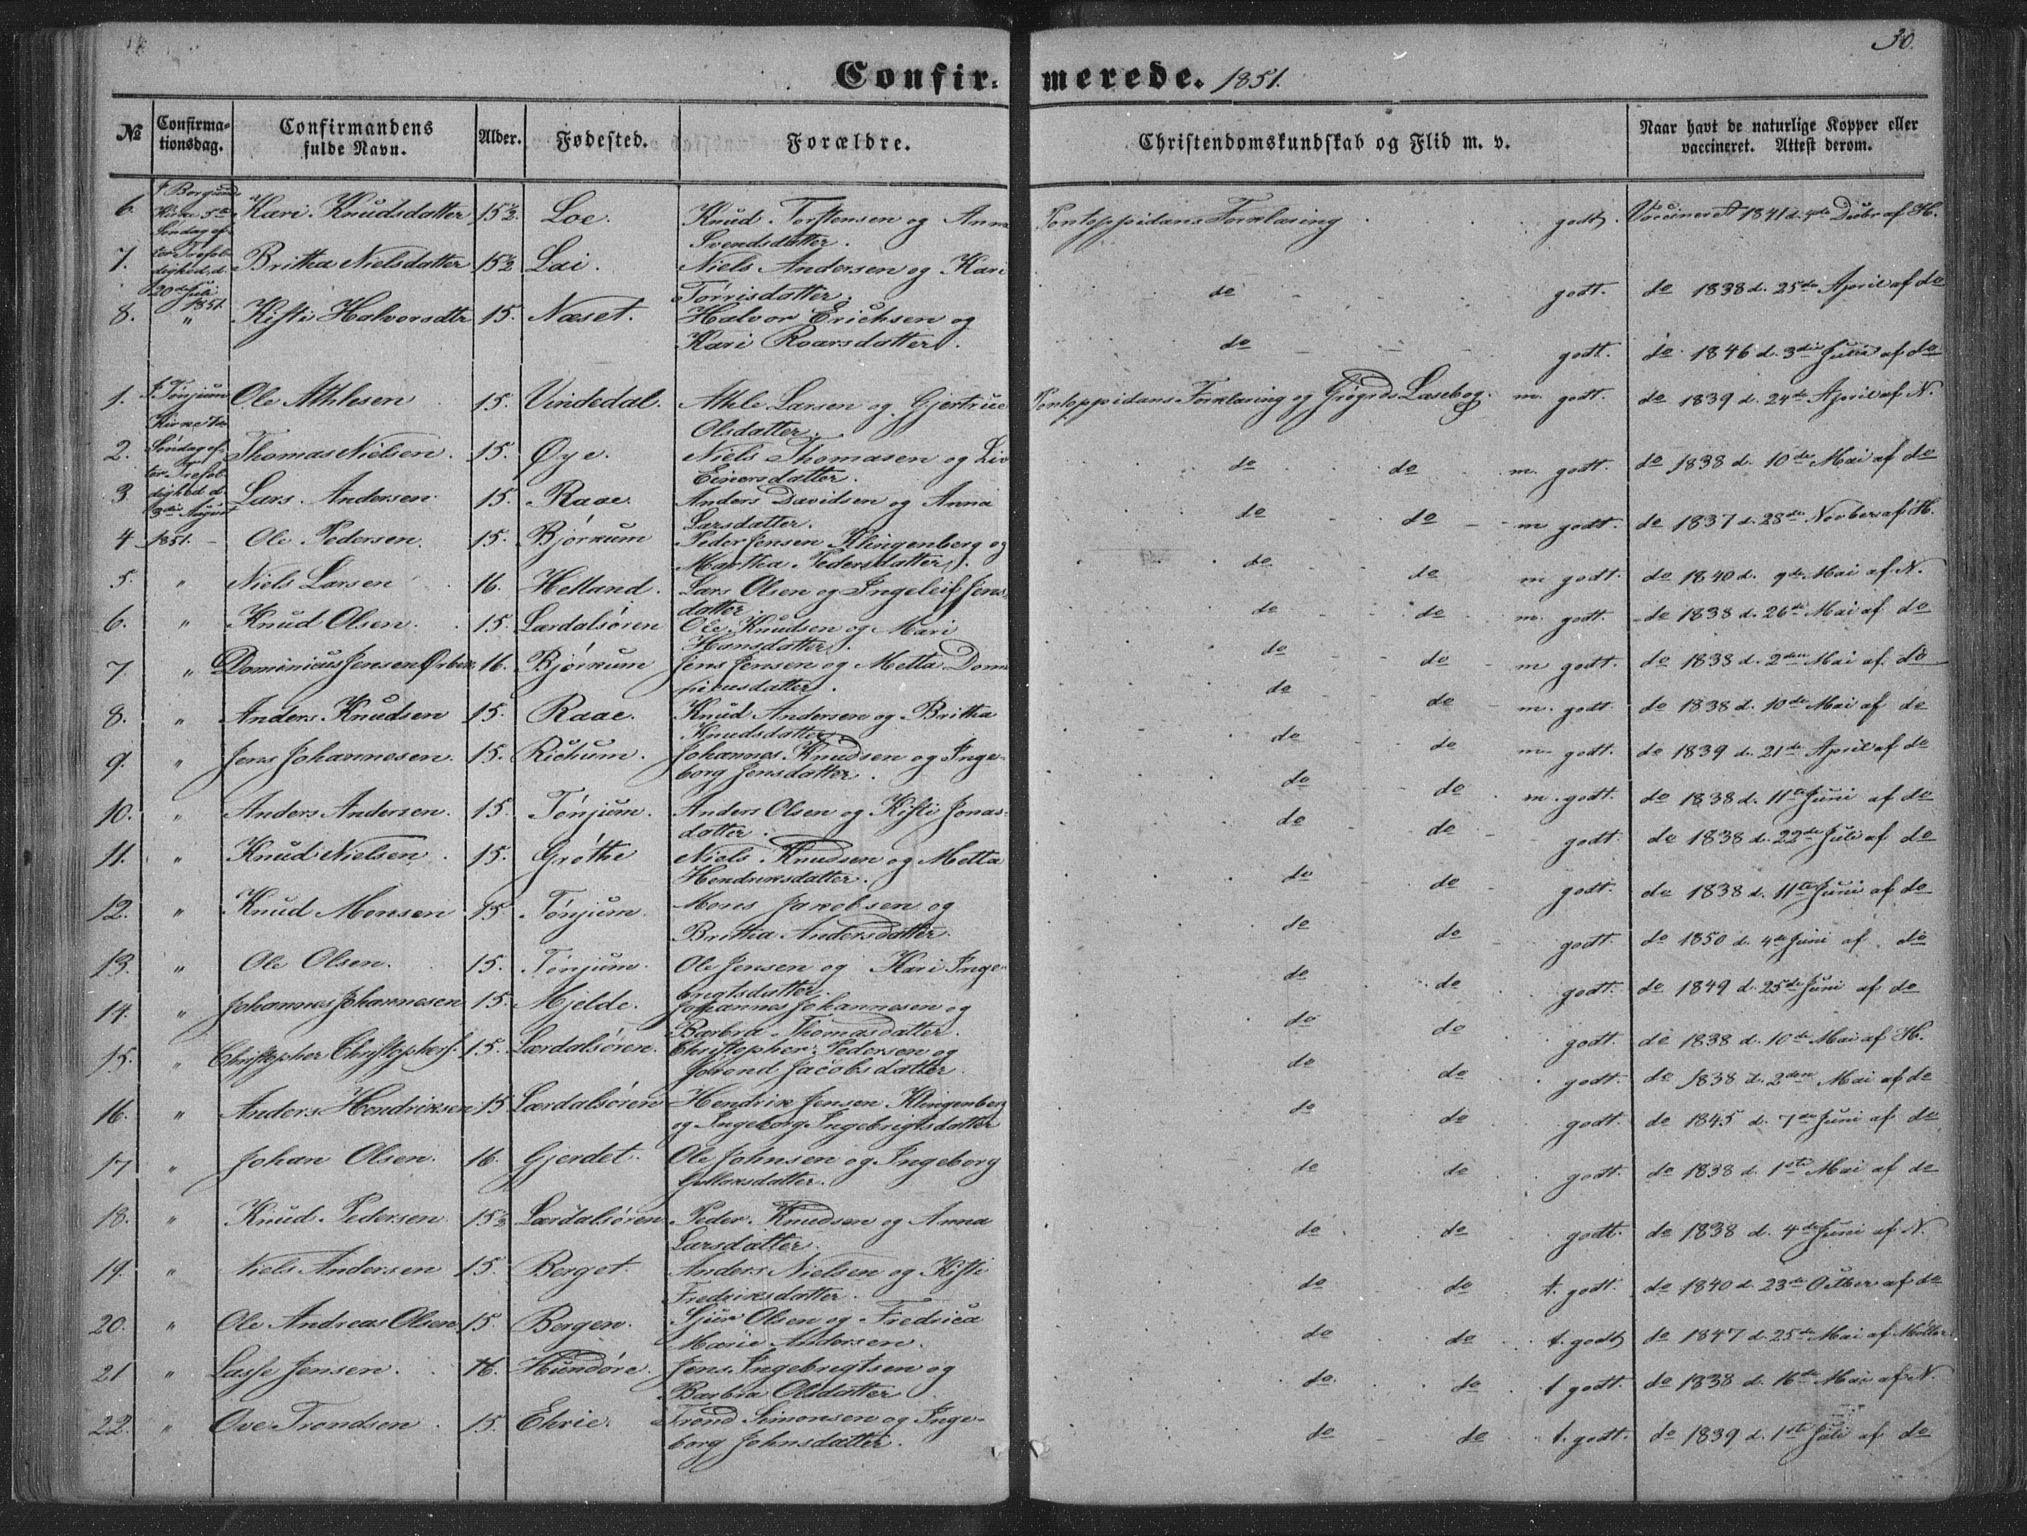 30.
Confirmerede. 1851.
№ Confirmationsdag. Confirmandens fulde Navn. Alder. Fødested. Forældre. Christendomskundskab og Flid m. v. Naar havt de naturlige Kopper eller vaccineret. Attest derom.
I Borgunds Kirke 5te Søndag efter Trefoldighed d. 20de Juli 1851.
6. Kari Knudsdatter 15½ Loe. Knud Torstensen og Anna Svendsdatter. Pontoppidans Forklaring godt. Vaccineret 1841 d. 4de Decbr af H.
7. Britha Nielsdatter 15½ Lai. Niels Andersen og Kari Torrisdatter. do godt. do 1838 d. 25de April af do
8. " Kisti Halvorsdtr 15. Næset. Halvor Erichsen og Kari Roarsdatter. do godt. do 1846 d. 3die Juni af do
I Tønjum Kirke 7de Søndag efter Trefoldighed d. 3die August 1851.
1. Ole Athlesen 15. Vindedal. Athle Larsen og Gjertrue Olsdatter. Pontoppidans Forklaring og Grøgrds Læsebog. m. godt. do 1839 d. 24de April af N.
2. Thomas Nielsen. 15. Øye. Niels Thomasen og Liv Einersdatter. do do m. godt. do 1838 d. 10de Mai af do
3 Lars Andersen 15. Raae. Anders Davidsen og Anna Larsdatter. do do m godt. do 1837 d. 28de Novber af H.
4 Ole Pedersen. 15. Bjørkum Peder Jensen Klingenberg og Martha Pedersdatter. do do m godt. do 1840 d. 9de Mai af N.
5. " Niels Larsen 16. Helland. Lars Olsen og Ingeleif Jensdatter. do do m. godt. do 1838 d. 26de Mai af do
6. " Knud Olsen. 15. Lærdalsøren Ole Knudsen og Mari Hansdatter. do do m godt. do 1838 d. 2den Mai af do
7. " Dominicus Jensen Ørbek 16. Bjørkum Jens Jensen og Metta Dominicusdatter. do do m. godt. do 1838 d. 10de Mai af do
8. " Anders Knudsen 15. Raae. Knud Andersen og Britha Knudsdatter do do m. godt. do 1839 d. 21de April af do
9. " Jens Johannesen. 15. Rickum. Johannes Knudsen og Ingeborg Jensdatter. do do m. godt. do 1838 d. 11te Juni af do
10. " Anders Andersen. 15. Tønjum. Anders Olsen og Kisti Jonasdatter. do do godt. do 1838 d. 22de Juli af do
11. " Knud Nielsen 15. Grøthe Niels Knudsen og Metta Hendriksdatter. do do godt. do 1838 d. 11te Juni af do
12. " Knud Monsen 15. Tønjum. Mons Jakobsen og Britha Andersdatter. do do godt. do 1850 d. 4de Juni af do
13. " Ole Olsen. 15. Tønjum. Ole Jensen og Kari Ingebregtsdatter. do do godt. do 1849 d. 25de Juni af do
14. " Johannes Johannesen 15. Mjelde. Johannes Johannesen og Barbra Thomasdatter. do do godt. do 1838 d. 10de Mai af H.
15. " Christopher Christophers. 15. Lærdalsøren. Christopher Pedersen og Jørend Jacobsdatter. do do godt. do 1838 d. 2den Mai af do
16. " Anders Hendriksen 15 Lærdalsøren Hendrik Jensen Klingenberg og Ingeborg Ingebrigtsdatter do do godt. do 1845 d. 7de Juni af do
17 " Johan Olsen. 16. Gjerdet. Ole Johnsen og Ingeborg Gullaksdatter. do do godt. do 1838 d. 1ste Mai af do
18. " Knud Pedersen 15½ Lærdalsøren Peder Knudsen og Anna Larsdatter. do do godt. do 1838 d. 4de Juni af N.
19. " Niels Andersen 15. Berget. Anders Nielsen og Kisti Fredriksdatter. do do t. godt. do 1840 d. 23de Octber af do
20. " Ole Andreas Olsen 15. Bergen. Sjur Olsen og Fredrica Marie Andersen. do do t. godt do 1847 d. 25de Mai af Møller
21 " Lasse Jensen. 16. Hundøre. Jens Ingebregtsen og Barbra Olsdatter. do do t godt. do 1838 d. 16de Mai af N.
22. " Ove Trondsen 15. Ehrie. Trond Simonsen og Ingeborg Johnsdatter. do do t. godt. do 1839 d. 1ste Juli af do